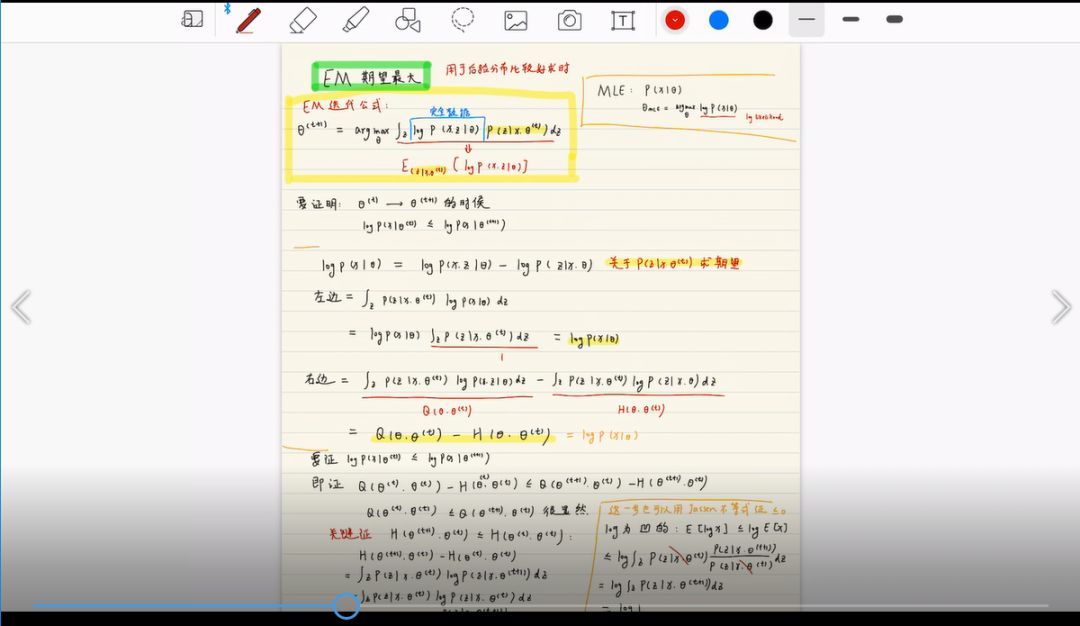 EM 期望最大 用于后验分布比较好求时
EM 迭代公式:
完全数据
θ^(t+1) = arg max_θ ∫_z log P(x.z|θ) P(z|x.θ^(t)) dz
E_(z|x.θ^(t)) [log P(x.z|θ)]
MLE: P(x|θ)
θ_MLE = argmax_θ log P(x|θ)
log likelihood
要证明: θ^(t) → θ^(t+1) 的时候
log P(x|θ^(t)) ≤ log P(x|θ^(t+1))
log P(x|θ) = log P(x.z|θ) - log P(z|x.θ) 关于 P(z|x.θ^(t)) 求期望
左边 = ∫_z P(z|x.θ^(t)) log P(x|θ) dz
= log P(x|θ) ∫_z P(z|x.θ^(t)) dz = log P(x|θ)
1
右边 = ∫_z P(z|x.θ^(t)) log P(x.z|θ) dz - ∫_z P(z|x.θ^(t)) log P(z|x.θ) dz
Q(θ.θ^(t)) H(θ.θ^(t))
= Q(θ.θ^(t)) - H(θ.θ^(t)) = log P(x|θ)
要证 log P(x|θ^(t)) ≤ log P(x|θ^(t+1))
即证 Q(θ^(t).θ^(t)) - H(θ^(t).θ^(t)) ≤ Q(θ^(t+1).θ^(t)) - H(θ^(t+1).θ^(t))
Q(θ^(t).θ^(t)) ≤ Q(θ^(t+1).θ^(t)) 很显然
关键证 H(θ^(t+1).θ^(t)) ≤ H(θ^(t).θ^(t)):
H(θ^(t+1).θ^(t)) - H(θ^(t).θ^(t))
= ∫_z P(z|x.θ^(t)) log P(z|x.θ^(t+1)) dz
- ∫_z P(z|x.θ^(t)) log P(z|x.θ^(t)) dz
这一步也可以用 Jensen 不等式证 ≤ 0
log 为 凹的: E[log x] ≤ log E[x]
≤ log ∫_z P(z|x.θ^(t)) P(z|x.θ^(t+1)) / P(z|x.θ^(t)) dz
= log ∫_z P(z|x.θ^(t+1)) dz
= log 1